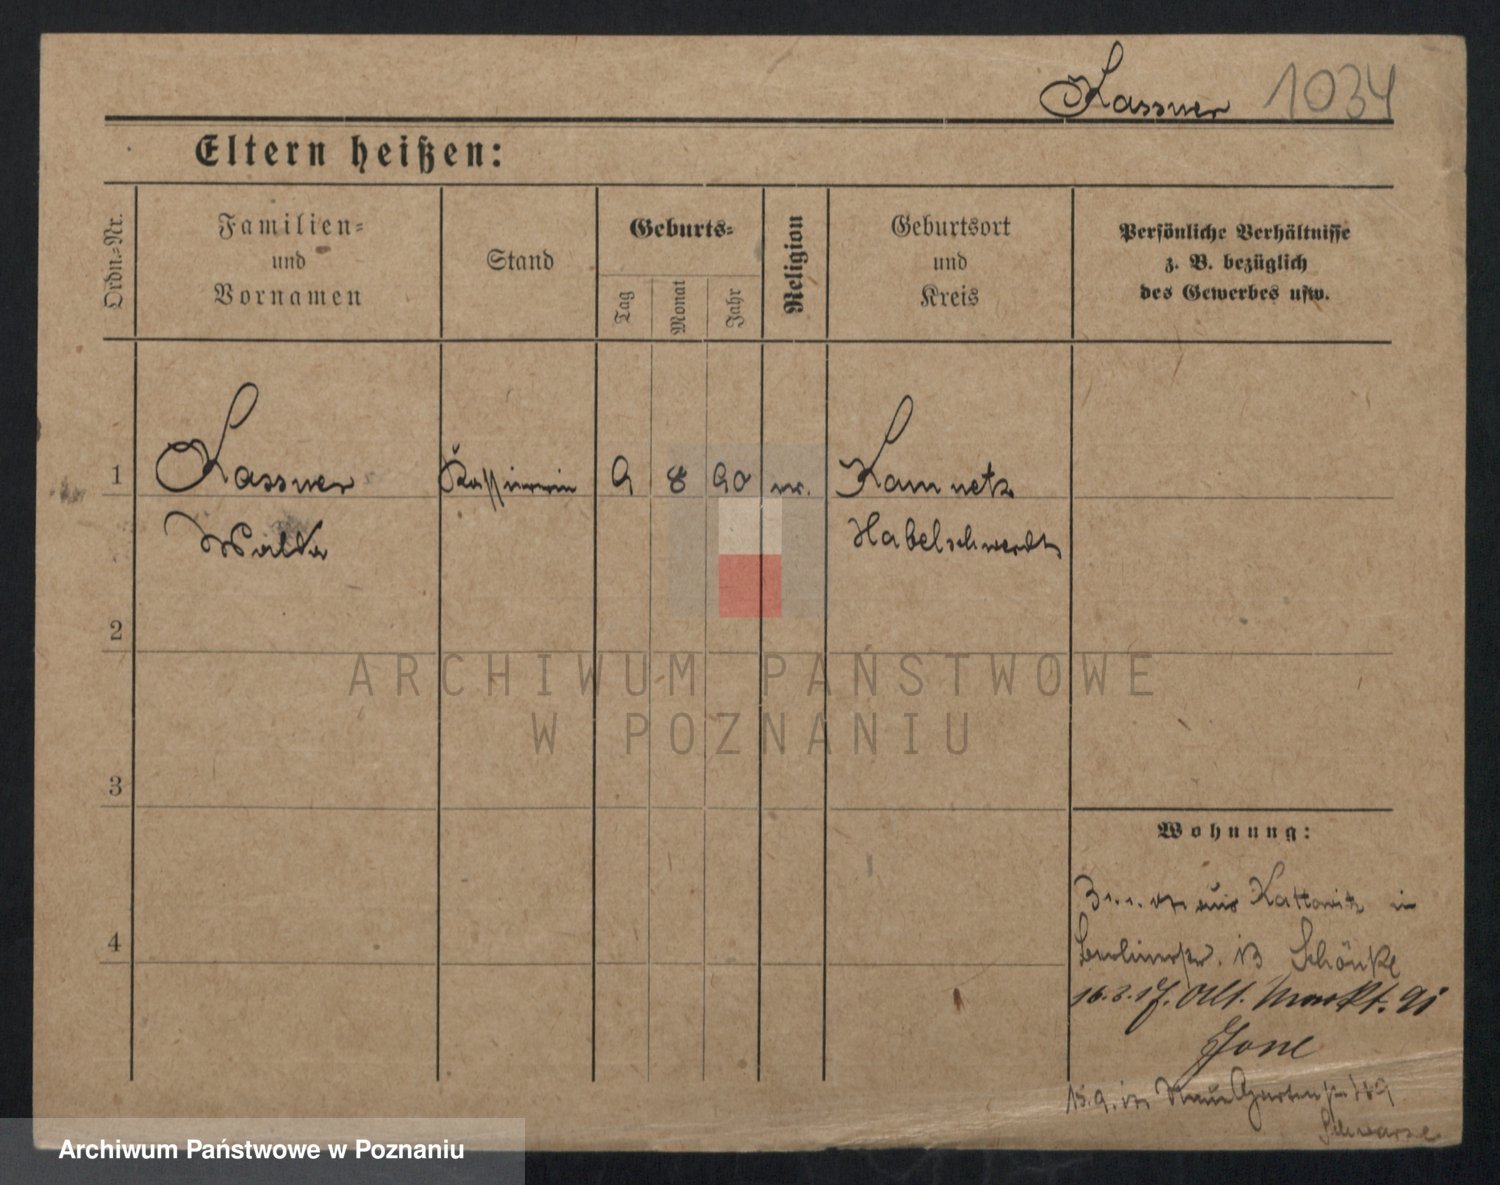 Kassner 1034
Eltern heißen:
Ordn.-Nr.
Familien-
und
Vornamen
Stand
Geburts-
Tag
Monat
Jahr
Religion
Geburtsort
und
Kreis
Persönliche Verhältnisse
z. B. bezüglich
des Gewerbes usw.
1 Kassner 9 8 90 Kamnetz
Habelschwerdt
2
3
4
Wohnung:
aus Kattowitz in
Berlinerstr. Schönke
Alt. Markt. 91
15.9.
ARCHIWUM PAŃSTWOWE
W POZNANIU
Archiwum Państwowe w Poznaniu